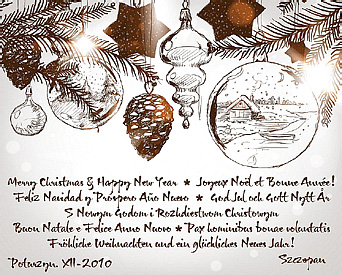 Merry Christmas & Happy New Year ★ Joyeux Noël et Bonne Année!
Feliz Navidad y Prospero Año Nuevo ★ God Jul och Gott Nytt År
S Nowym Godom i Rozhdiestwom Christowym
Buon Natale e Felice Anno Nuovo ★ Pax hominibus bonae voluntatis
Fröhliche Weihnachten und ein glückliches Neues Jahr!
Potworzyn. XII-2010 Szczepan